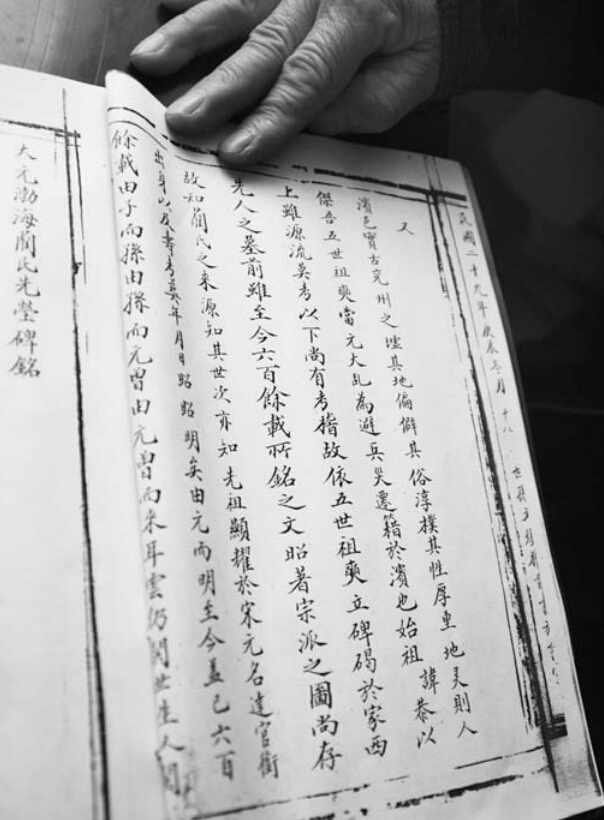 民國二十九年庚辰三月十八
又
濱邑實古兗州之墟其地偏僻其俗淳樸其性厚重地美則人
傑吾五世祖奭當元大乱為避兵災遷籍於濱也始祖諱恭以
上雖源流莫考以下尚有考稽故依五世祖奭立碑碣於家西
先人之墓前雖至今六百餘載所銘之文昭著宗派之圖尚存
故知藺氏之来源知其世次亦知先祖顯耀於宋元名達官銜
出身以及壽考莫年月日昭昭明矣由元而明至今盖已六百
餘載由子而孫由孫而元曾由元曾而来耳雲仍閲世生人
大元渤海藺氏先塋碑銘